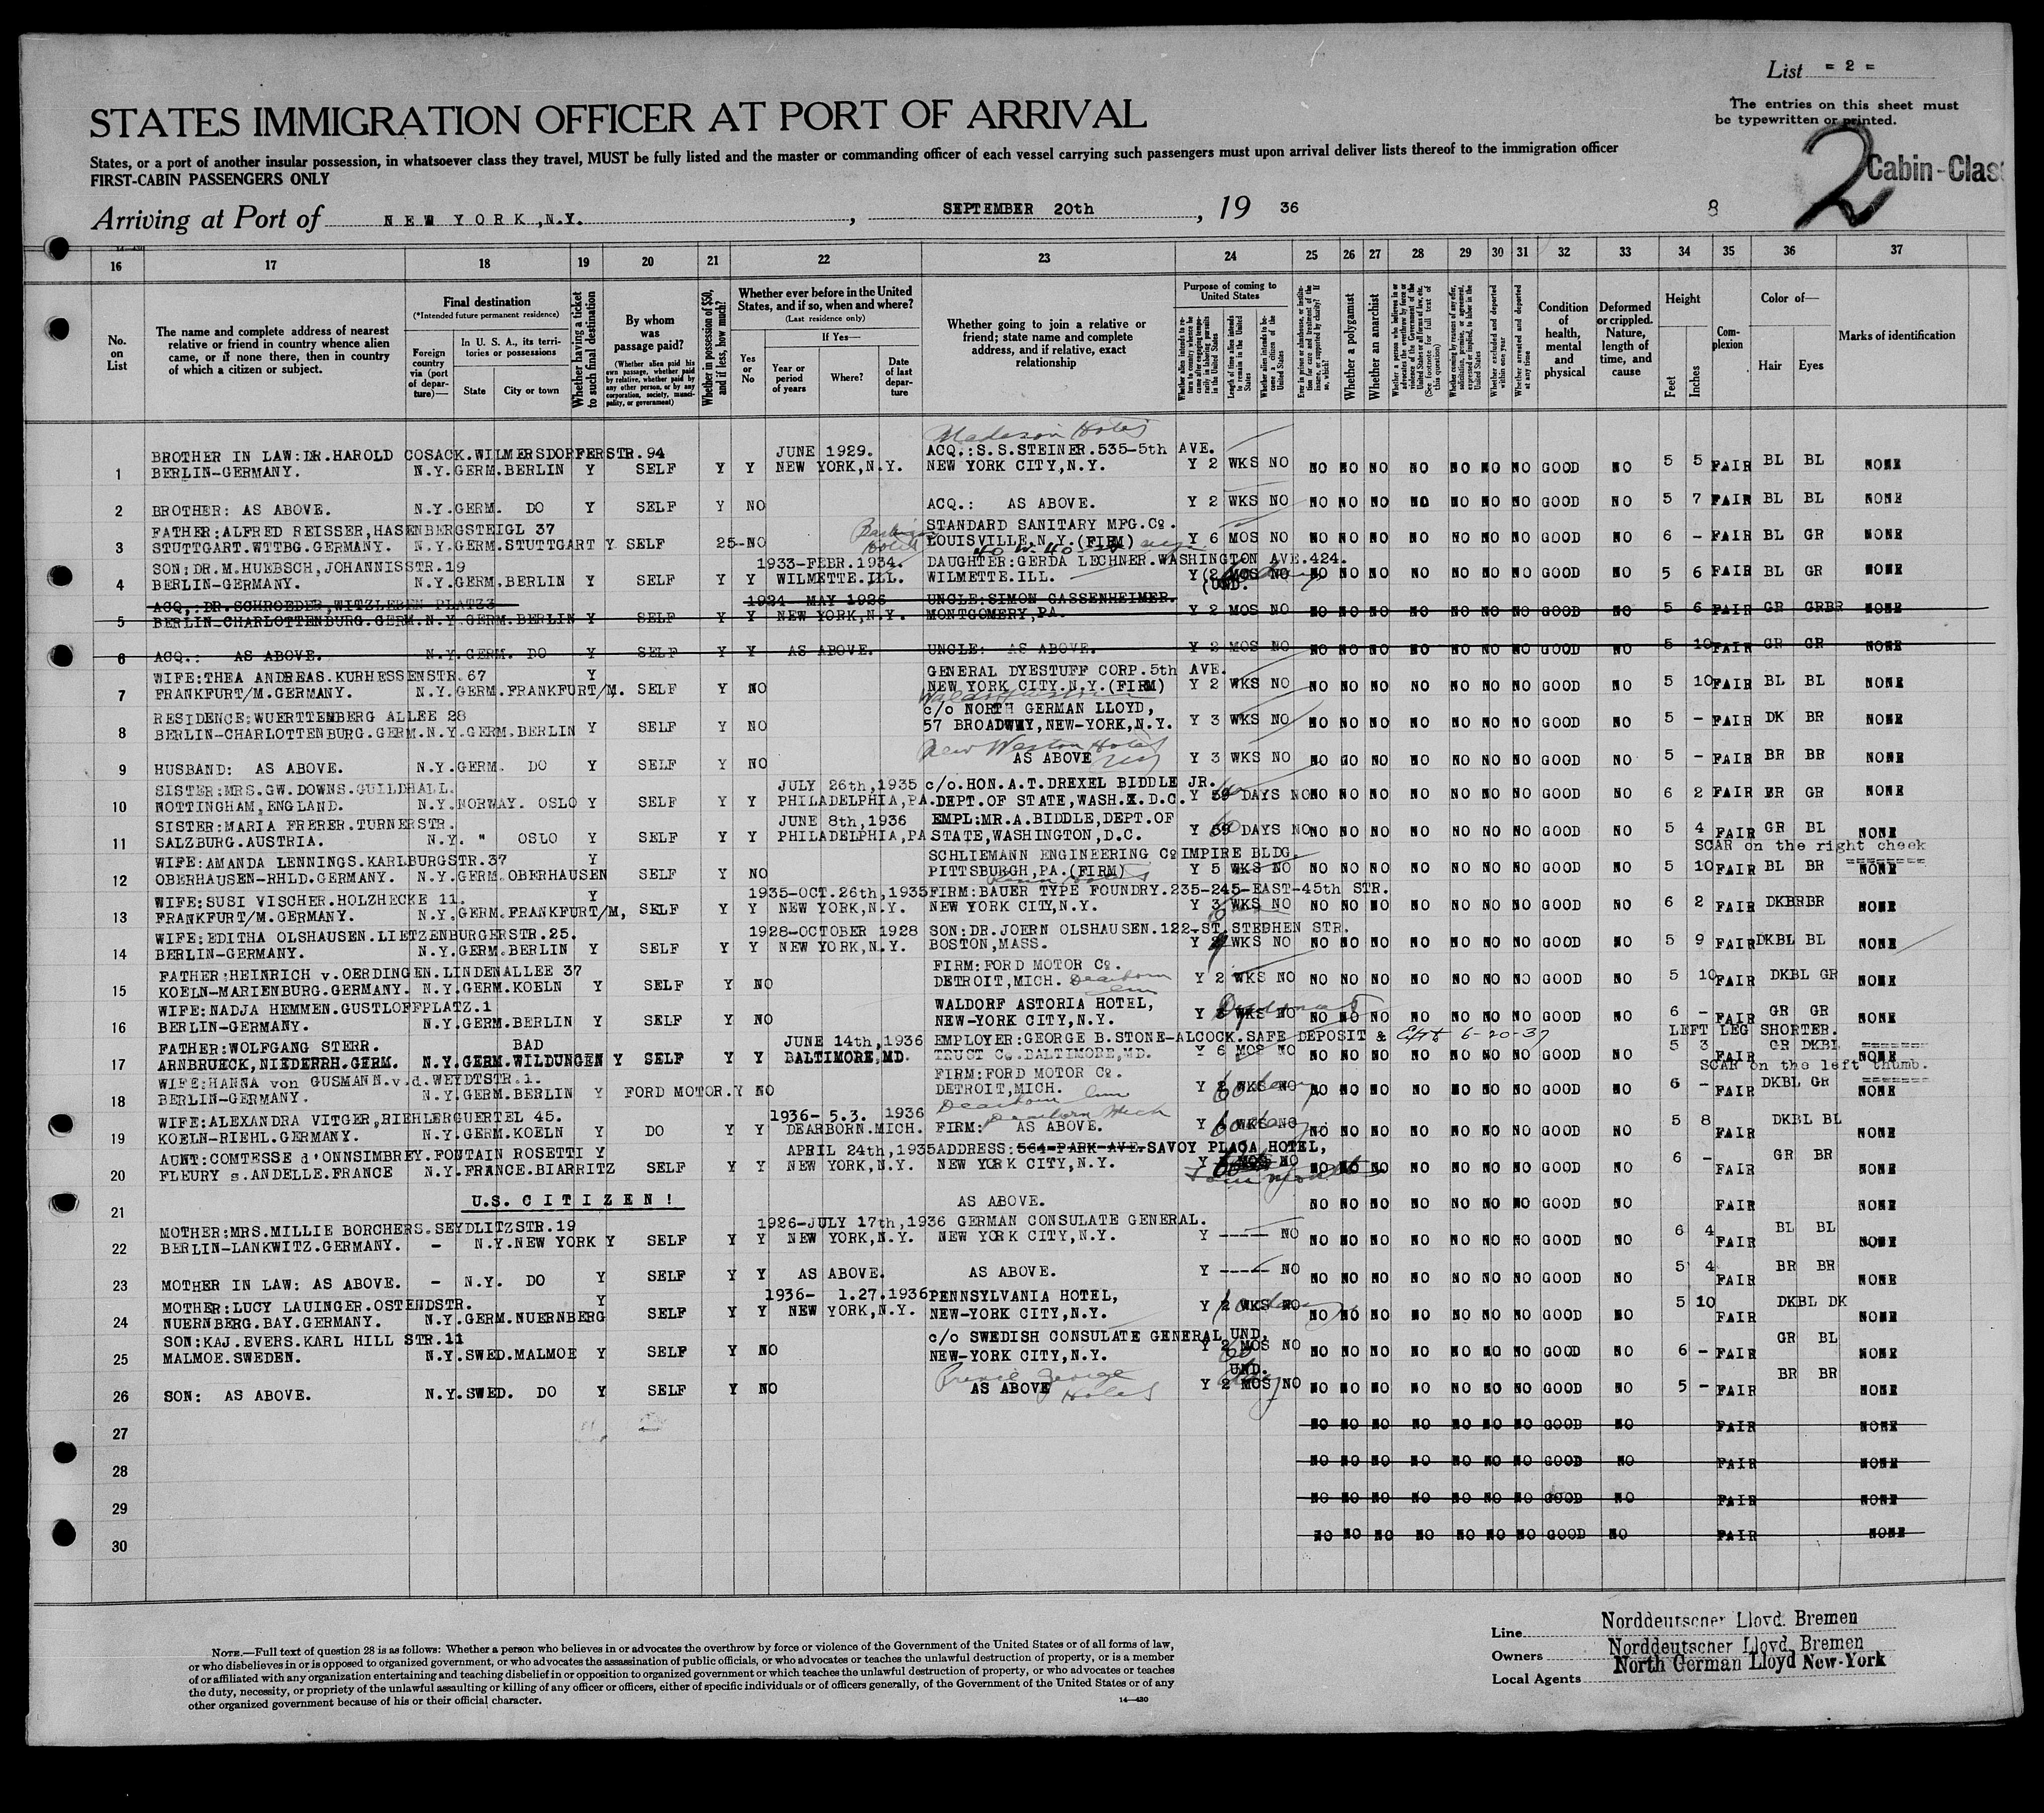 List = 2 =
The entries on this sheet must
be typewritten or printed.
STATES IMMIGRATION OFFICER AT PORT OF ARRIVAL
2 Cabin-Clas
States, or a port of another insular possession, in whatsoever class they travel, MUST be fully listed and the master or commanding officer of each vessel carrying such passengers must upon arrival deliver lists thereof to the immigration officer
FIRST-CABIN PASSENGERS ONLY
Arriving at Port of NEW YORK,N.Y., SEPTEMBER 20th, 19 36 8
16 17 18 19 20 21 22 23 24 25 26 27 28 29 30 31 32 33 34 35 36 37
No. on List
The name and complete address of nearest relative or friend in country whence alien came, or if none there, then in country of which a citizen or subject.
Final destination
(*Intended future permanent residence)
Foreign country via (port of departure)—
In U. S. A., its territories or possessions
State City or town
Whether having a ticket to such final destination
By whom was passage paid?
(Whether alien paid his own passage, whether paid by relative, whether paid by any other person, or by any corporation, society, municipality, or government)
Whether in possession of $50, and if less, how much?
Whether ever before in the United States, and if so, when and where?
(Last residence only)
Yes or No
If Yes—
Year or period of years Where? Date of last departure
Whether going to join a relative or friend; state name and complete address, and if relative, exact relationship
Purpose of coming to United States
Whether alien intends to return to country whence he came after engaging temporarily in laboring pursuits in the United States
Length of time alien intends to remain in the United States
Whether alien intends to become a citizen of the United States
Ever in prison or almshouse, or institution for care and treatment of the insane, or supported by charity? If so, which?
Whether a polygamist
Whether an anarchist
Whether a person who believes in or advocates the overthrow by force or violence of the Government of the United States or all forms of law, etc. (See footnote for full text of this question)
Whether coming by reasons of any offer, solicitation, promise, or agreement, expressed or implied, to labor in the United States
Whether excluded and deported within one year
Whether arrested and deported at any time
Condition of health, mental and physical
Deformed or crippled. Nature, length of time, and cause
Height
Feet Inches
Complexion
Color of—
Hair Eyes
Marks of identification
Madeson Hotel
BROTHER IN LAW:DR.HAROLD COSACK.WILMERSDORFERSTR.94 JUNE 1929. ACQ.:S.S.STEINER.535-5th AVE.
1 BERLIN-GERMANY. N.Y.GERM.BERLIN Y SELF Y Y NEW YORK,N.Y. NEW YORK CITY,N.Y. Y 2 WKS NO NO NO NO NO NO NO NO GOOD NO 5 5 FAIR BL BL NONE
2 BROTHER: AS ABOVE. N.Y.GERM. DO Y SELF Y NO ACQ.: AS ABOVE. Y 2 WKS NO NO NO NO NO NO NO NO GOOD NO 5 7 FAIR BL BL NONE
FATHER:ALFRED REISSER,HASENBERGSTEIGL 37 STANDARD SANITARY MFG.Co.
3 STUTTGART.WTTBG.GERMANY. N.Y.GERM.STUTTGART Y SELF 25-NO LOUISVILLE.N.Y.(FIRM) Y 6 MOS NO NO NO NO NO NO NO NO GOOD NO 6 - FAIR BL GR NONE
SON:DR.M.HUEBSCH,JOHANNISSTR.19 1933-FEBR.1934. DAUGHTER:GERDA LECHNER.WASHINGTON AVE.424.
4 BERLIN-GERMANY. N.Y.GERM.BERLIN Y SELF Y Y WILMETTE.ILL. WILMETTE.ILL. Y (2 MOS NO NO NO NO NO NO NO NO GOOD NO 5 6 FAIR BL GR NONE
(UND.
ACQ,:DR.SCHROEDER,WITZLEBEN PLATZ3 1924- MAY 1926 UNCLE:SIMON GASSENHEIMER.
5 BERLIN-CHARLOTTENBURG.GERM.N.Y.GERM.BERLIN Y SELF Y Y NEW YORK,N.Y. MONTGOMERY,PA. Y 2 MOS NO NO NO NO NO NO NO NO GOOD NO 5 6 FAIR GR GRBR NONE
6 ACQ.: AS ABOVE. N.Y.GERM. DO Y SELF Y Y AS ABOVE. UNCLE: AS ABOVE. Y 2 MOS NO NO NO NO NO NO NO NO GOOD NO 5 10 FAIR GR GR NONE
WIFE:THEA ANDREAS.KURHESSENSTR.67 Y GENERAL DYESTUFF CORP.5th AVE.
7 FRANKFURT/M.GERMANY. N.Y.GERM.FRANKFURT/M. SELF Y NO NEW YORK CITY.N.Y.(FIRM) Y 2 WKS NO NO NO NO NO NO NO NO GOOD NO 5 10 FAIR BL BL NONE
RESIDENCE:WUERTTEMBERG ALLEE 28 c/o NORTH GERMAN LLOYD,
8 BERLIN-CHARLOTTENBURG.GERM.N.Y.GERM.BERLIN Y SELF Y NO 57 BROADWAY,NEW-YORK,N.Y. Y 3 WKS NO NO NO NO NO NO NO NO GOOD NO 5 - FAIR DK BR NONE
New Weston Hotel
9 HUSBAND: AS ABOVE. N.Y.GERM. DO Y SELF Y NO AS ABOVE Y 3 WKS NO NO GO NO NO NO NO NO GOOD NO 5 - FAIR BR BR NONE
SISTER:MRS.GW.DOWNS.GUILDHALL. JULY 26th,1935 c/o.HON.A.T.DREXEL BIDDLE JR.
10 NOTTINGHAM,ENGLAND. N.Y.NORWAY. OSLO Y SELF Y Y PHILADELPHIA,PA.DEPT.OF STATE,WASH.X.D.C. Y 59 DAYS NO NO NO NO NO NO NO NO GOOD NO 6 2 FAIR BR GR NONE
SISTER:MARIA FRERER.TURNERSTR. JUNE 8th,1936 EMPL:MR.A.BIDDLE,DEPT.OF
11 SALZBURG.AUSTRIA. N.Y. " OSLO Y SELF Y Y PHILADELPHIA,PA STATE,WASHINGTON,D.C. Y 59 DAYS NO NO NO NO NO NO NO NO GOOD NO 5 4 FAIR GR BL NONE
SCAR on the right cheek
WIFE:AMANDA LENNINGS.KARLBURGSTR.37 Y SCHLIEMANN ENGINEERING Co IMPIRE BLDG.
12 OBERHAUSEN-RHLD.GERMANY. N.Y.GERM.OBERHAUSEN SELF Y NO PITTSBURGH,PA.(FIRM) Y 5 WKS NO NO NO NO NO NO NO NO GOOD NO 5 10 FAIR BL BR NONE
WIFE:SUSI VISCHER.HOLZHECKE 11. 1935-OCT.26th,1935 FIRM:BAUER TYPE FOUNDRY.235-245-EAST-45th STR.
13 FRANKFURT/M.GERMANY. N.Y.GERM.FRANKFURT/M, SELF Y Y NEW YORK,N.Y. NEW YORK CITY,N.Y. Y 3 WKS NO NO NO NO NO NO NO NO GOOD NO 6 2 FAIR DKBRBR NONE
WIFE:EDITHA OLSHAUSEN.LIETZENBURGERSTR.25. 1928-OCTOBER 1928 SON:DR.JOERN OLSHAUSEN.122-ST.STEPHEN STR.
14 BERLIN-GERMANY. N.Y.GERM.BERLIN Y SELF Y Y NEW YORK,N.Y. BOSTON,MASS. Y WKS NO NO NO NO NO NO NO NO GOOD NO 5 9 FAIR DKBL BL NONE
FATHER:HEINRICH v.OERDINGEN.LINDENALLEE 37 FIRM:FORD MOTOR Co.
15 KOELN-MARIENBURG.GERMANY. N.Y.GERM.KOELN Y SELF Y NO DETROIT,MICH. Dearborn Y 2 WKS NO NO NO NO NO NO NO NO GOOD NO 5 10 FAIR DKBL GR NONE
WIFE:NADJA HEMMEN.GUSTLOFFPLATZ.1 WALDORF ASTORIA HOTEL,
16 BERLIN-GERMANY. N.Y.GERM.BERLIN Y SELF Y NO NEW-YORK CITY,N.Y. Y WKS NO NO NO NO NO NO NO NO GOOD NO 6 - FAIR GR GR NONE
LEFT LEG SHORTER.
FATHER:WOLFGANG STERR. BAD JUNE 14th,1936 EMPLOYER:GEORGE B.STONE-ALCOCK.SAFE DEPOSIT & 6-20-37
17 ARNBRUECK,NIEDERRH.GERM. N.Y.GERM.WILDUNGEN Y SELF Y Y BALTIMORE,MD. TRUST Co.BALTIMORE,MD. Y 6 MOS NO NO NO NO NO NO NO NO GOOD NO 5 3 FAIR GR DKBL NONE
SCAR on the left thumb.
WIFE:HANNA von GUSMANN.v.d.WEYDTSTR.1. FIRM:FORD MOTOR Co.
18 BERLIN-GERMANY. N.Y.GERM.BERLIN Y FORD MOTOR.Y NO DETROIT,MICH. Y 2 WKS NO NO NO NO NO NO NO NO GOOD NO 6 - FAIR DKBL GR NONE
Dearborn Dearborn Mich
WIFE:ALEXANDRA VITGER,RIEHLERGUERTEL 45. 1936- 5.3. 1936
19 KOELN-RIEHL.GERMANY. N.Y.GERM.KOELN Y DO Y Y DEARBORN.MICH. FIRM: AS ABOVE. Y WKS NO NO NO NO NO NO NO NO GOOD NO 5 8 FAIR DKBL BL NONE
AUNT:COMTESSE d'ONNSIMBREY.FONTAIN ROSETTI Y APRIL 24th,1935 ADDRESS:564-PARK-AVE.SAVOY PLAZA HOTEL,
20 FLEURY s.ANDELLE.FRANCE N.Y.FRANCE.BIARRITZ SELF Y Y NEW YORK,N.Y. NEW YORK CITY,N.Y. Y MOS NO NO NO NO NO NO NO NO GOOD NO 6 - FAIR GR BR NONE
21 U.S. CITIZEN! AS ABOVE. NO NO NO NO NO NO NO GOOD NO FAIR NONE
MOTHER:MRS.MILLIE BORCHERS.SEYDLITZSTR.19 1926-JULY 17th,1936 GERMAN CONSULATE GENERAL.
22 BERLIN-LANKWITZ.GERMANY. - N.Y.NEW YORK Y SELF Y Y NEW YORK,N.Y. NEW YORK CITY,N.Y. Y ---- NO NO NO NO NO NO NO NO GOOD NO 6 4 FAIR BL BL NONE
23 MOTHER IN LAW: AS ABOVE. - N.Y. DO Y SELF Y Y AS ABOVE. AS ABOVE. Y ---- NO NO NO NO NO NO NO NO GOOD NO 5 4 FAIR BR BR NONE
MOTHER:LUCY LAUINGER.OSTENDSTR. Y 1936- 1.27.1936 PENNSYLVANIA HOTEL,
24 NUERNBERG.BAY.GERMANY. N.Y.GERM.NUERNBERG SELF Y Y NEW YORK,N.Y. NEW-YORK CITY,N.Y. Y 2 WKS NO NO NO NO NO NO NO NO GOOD NO 5 10 FAIR DKBL DK NONE
SON:KAJ.EVERS.KARL HILL STR.11 c/o SWEDISH CONSULATE GENERAL UND.
25 MALMOE.SWEDEN. N.Y.SWED.MALMOE Y SELF Y NO NEW-YORK CITY,N.Y. Y 2 MOS NO NO NO NO NO NO NO NO GOOD NO 6 - FAIR GR BL NONE
Prince George Hotel UND.
26 SON: AS ABOVE. N.Y.SWED. DO Y SELF Y NO AS ABOVE Y 2 MOS NO NO NO NO NO NO NO NO GOOD NO 5 - FAIR BR BR NONE
27 NO NO NO NO NO NO NO GOOD NO FAIR NONE
28 NO NO NO NO NO NO NO GOOD NO FAIR NONE
29 NO NO NO NO NO NO NO GOOD NO FAIR NONE
30 NO NO NO NO NO NO NO GOOD NO FAIR NONE
NOTE.—Full text of question 28 is as follows: Whether a person who believes in or advocates the overthrow by force or violence of the Government of the United States or of all forms of law,
or who disbelieves in or is opposed to organized government, or who advocates the assassination of public officials, or who advocates or teaches the unlawful destruction of property, or is a member
of or affiliated with any organization entertaining and teaching disbelief in or opposition to organized government or which teaches the unlawful destruction of property, or who advocates or teaches
the duty, necessity, or propriety of the unlawful assaulting or killing of any officer or officers, either of specific individuals or of officers generally, of the Government of the United States or of any
other organized government because of his or their official character.
14—430
Line Norddeutscher Lloyd. Bremen
Owners Norddeutscher Lloyd. Bremen
Local Agents North German Lloyd New-York